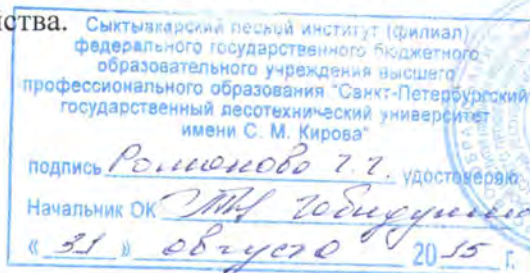 ства.
Сыктывкарский лесной институт (филиал)
федерального государственного бюджетного
образовательного учреждения высшего
профессионального образования "Санкт-Петербургский
государственный лесотехнический университет
имени С. М. Кирова"
подпись Романова Г.Г. удостоверяю
Начальник ОК
« 31 » августа 2015 г.